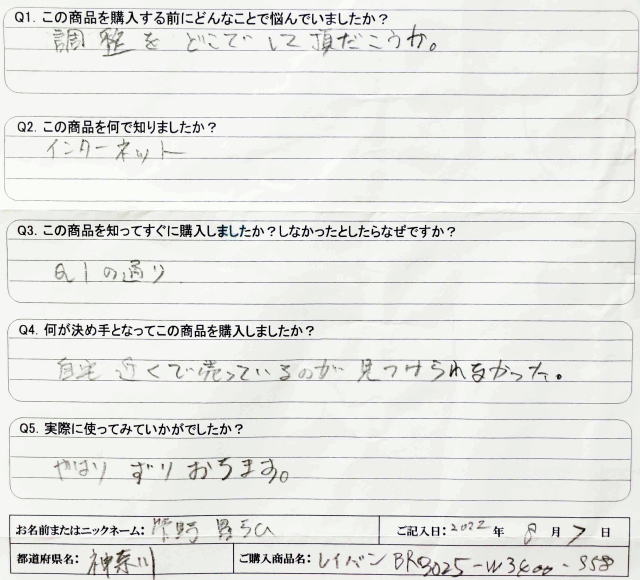 Q1. この商品を購入する前にどんなことで悩んでいましたか？
調整を どこでして頂だこうか。
Q2. この商品を何で知りましたか？
インターネット
Q3. この商品を知ってすぐに購入しましたか？しなかったとしたらなぜですか？
Q1の通り
Q4. 何が決め手となってこの商品を購入しましたか？
自宅 近くで売っているのが 見つけられなかった。
Q5. 実際に使ってみていかがでしたか？
やはり ずり おちます。
お名前またはニックネーム: ご記入日: 2022 年 8 月 7 日
都道府県名: 神奈川 ご購入商品名: レイバン BR3025-W3400-S58